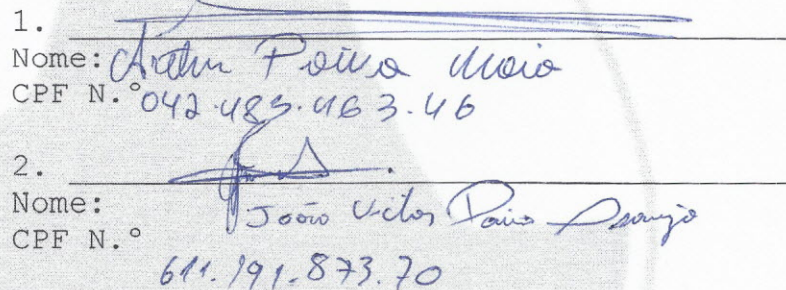 1.
Nome: Arthur Paiva Maia
CPF N.º 042.483.463.46
2.
Nome: João Victor Paiva Araujo
CPF N.º
611.191.873.70